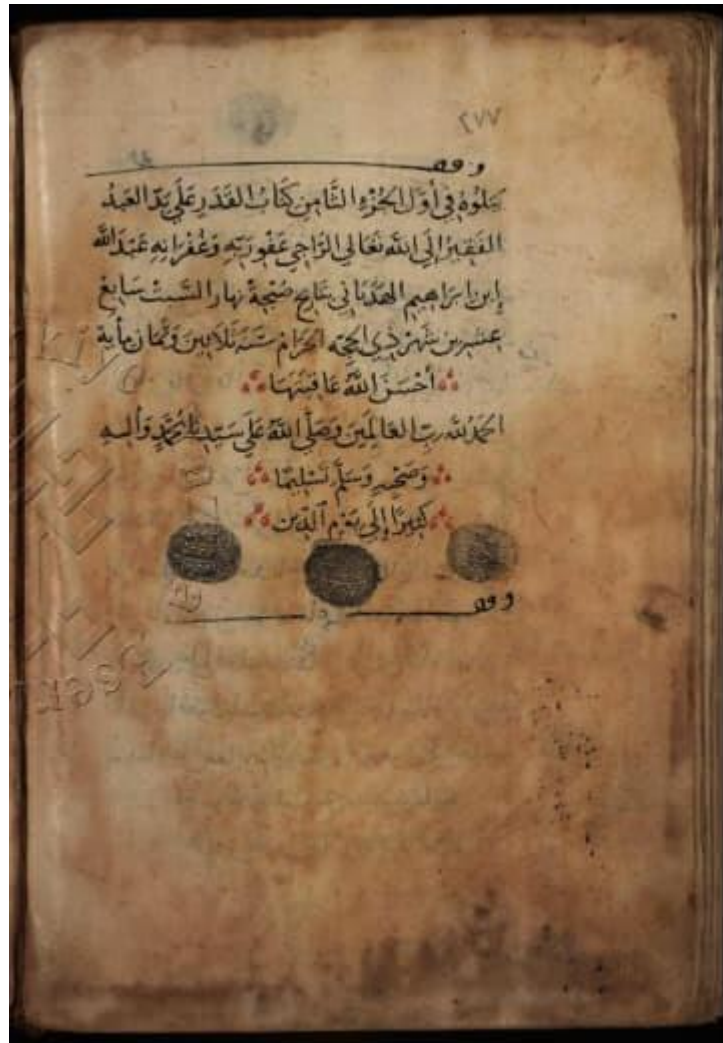 ٢٧٧
وقف
يتلوه في أول الجزء الثامن كتاب القدر علي يد العبد
الفقير إلي الله تعالي الراجي عفو ربه وغفرانه عبد الله
إبن إبراهيم الهمداني بتاريخ صبيحة نهار السبت سابع
عشر من شهر ذي الحجه الحرام سنة ثلاثين وثمان مأية
أحسن الله عاقبتها
الحمد لله رب العالمين وصلي الله علي سيدنا محمد وأله
وصحبه وسلم تسليما
كثيرا إلي يوم الدين
وقف